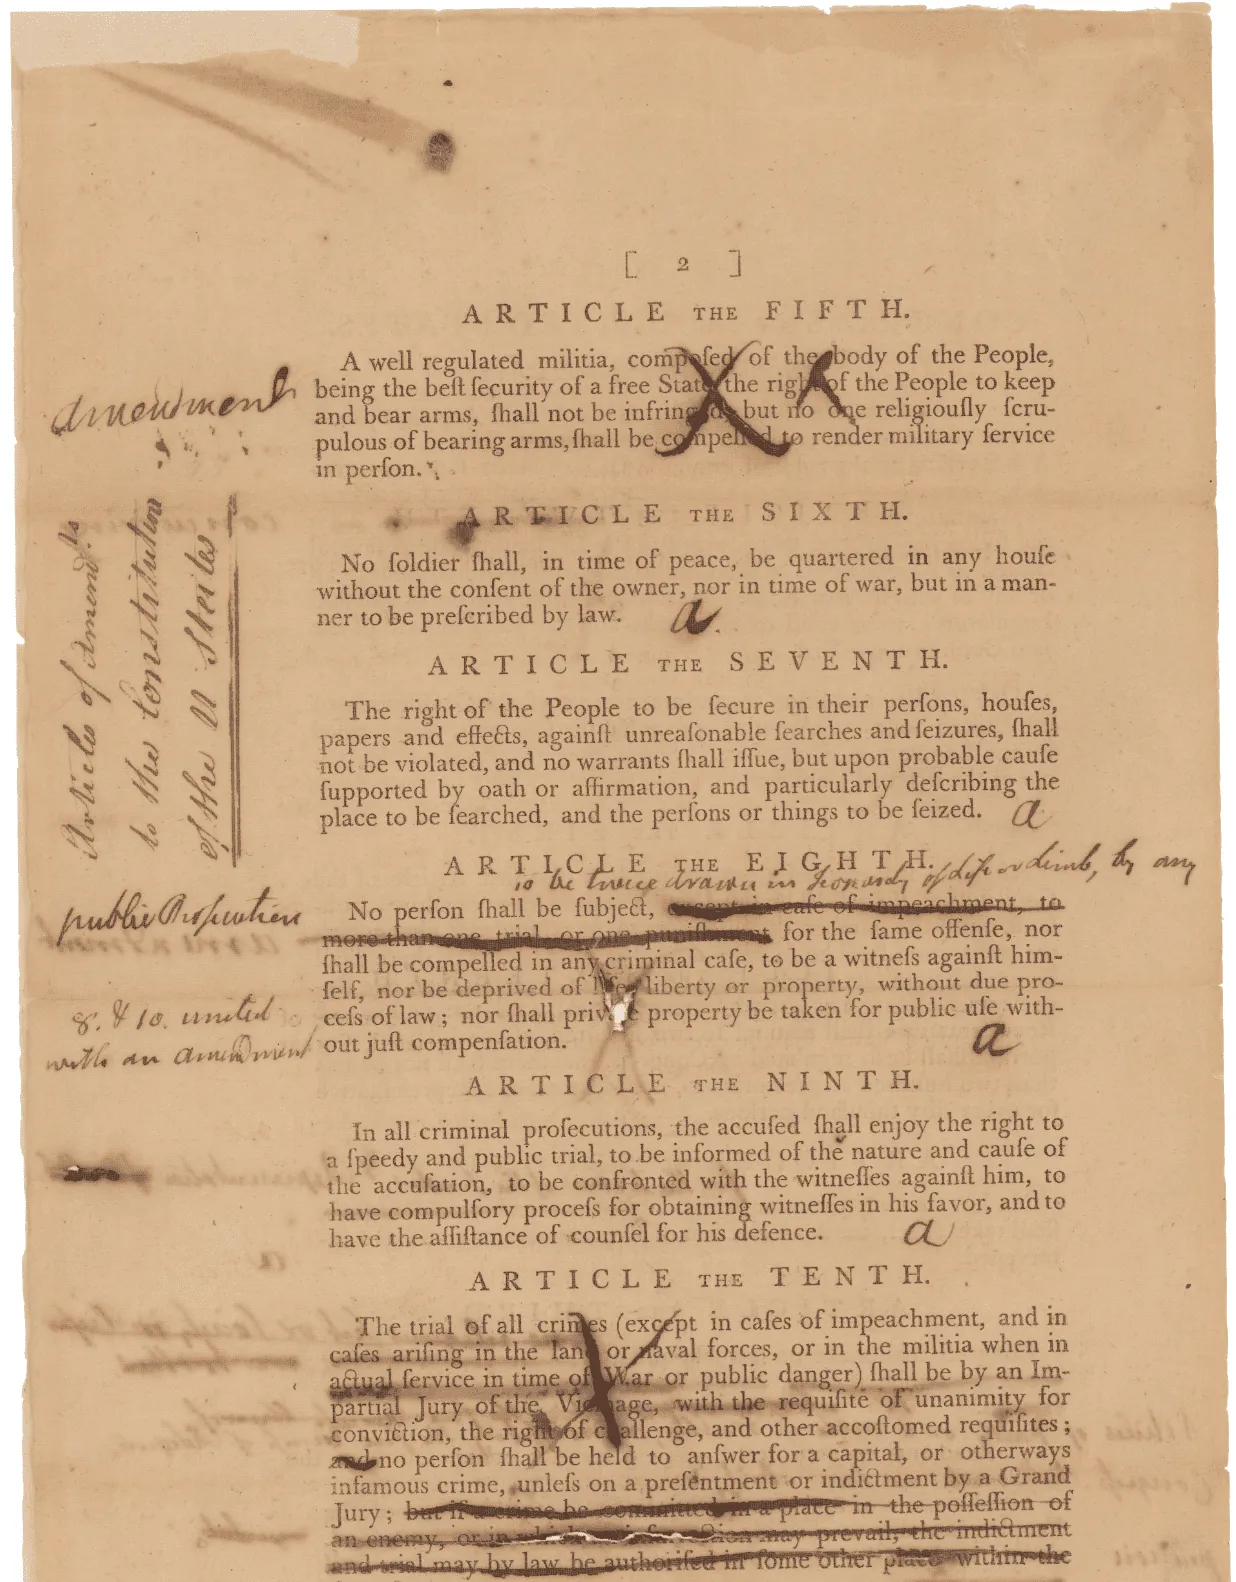 [ 2 ]
ARTICLE THE FIFTH.
A well regulated militia, compoſed of the body of the People,
being the beſt ſecurity of a free State, the right of the People to keep
and bear arms, ſhall not be infringed, but no one religiouſly ſcru-
pulous of bearing arms, ſhall be compelled to render military ſervice
in perſon.
amendment
ARTICLE THE SIXTH.
No ſoldier ſhall, in time of peace, be quartered in any houſe
without the conſent of the owner, nor in time of war, but in a man-
ner to be preſcribed by law. a
Articles of Amend.ts
to the Constitution
of the U States
ARTICLE THE SEVENTH.
The right of the People to be ſecure in their perſons, houſes,
papers and effects, againſt unreaſonable ſearches and ſeizures, ſhall
not be violated, and no warrants ſhall iſſue, but upon probable cauſe
ſupported by oath or affirmation, and particularly deſcribing the
place to be ſearched, and the perſons or things to be ſeized. a
ARTICLE THE EIGHTH.
to be twice in Jeopardy of Life or Limb, by any
public Prosecution
No perſon ſhall be ſubject, except in caſe of impeachment, to
more than one trial or one puniſhment for the ſame offenſe, nor
ſhall be compelled in any criminal caſe, to be a witneſs againſt him-
ſelf, nor be deprived of life, liberty or property, without due pro-
ceſs of law; nor ſhall private property be taken for public uſe with-
out juſt compenſation. a
8. & 10. united
with an amendment
ARTICLE THE NINTH.
In all criminal proſecutions, the accuſed ſhall enjoy the right to
a ſpeedy and public trial, to be informed of the nature and cauſe of
the accuſation, to be confronted with the witneſſes againſt him, to
have compulſory proceſs for obtaining witneſſes in his favor, and to
have the aſſiſtance of counſel for his defence. a
ARTICLE THE TENTH.
The trial of all crimes (except in caſes of impeachment, and in
caſes ariſing in the land or naval forces, or in the militia when in
actual ſervice in time of War or public danger) ſhall be by an Im-
partial Jury of the Vicinage, with the requiſite of unanimity for
conviction, the right of challenge, and other accoſtomed requiſites;
and no perſon ſhall be held to anſwer for a capital, or otherways
infamous crime, unleſs on a preſentment or indictment by a Grand
Jury; but if a crime be committed in a place in the poſſeſſion of
an enemy, or in which an inſurrection may prevail, the indictment
and trial may by law be authoriſed in ſome other place within the